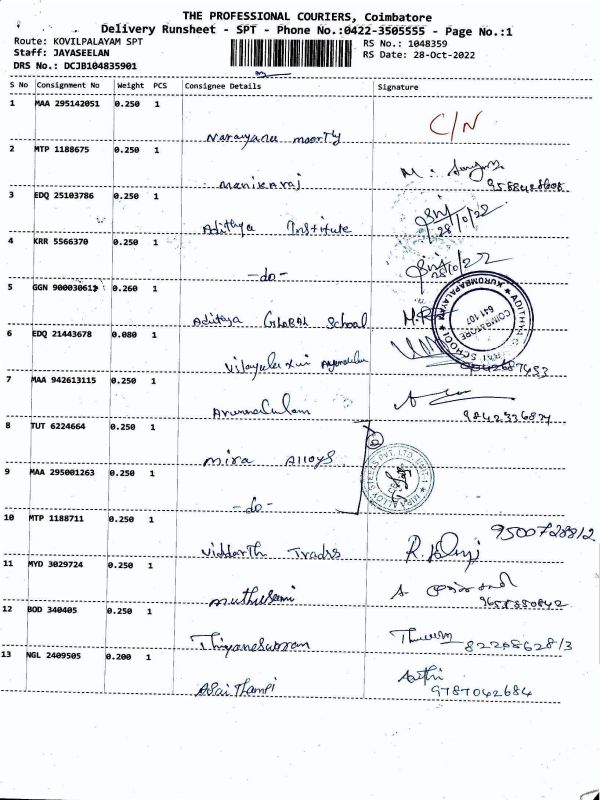 THE PROFESSIONAL COURIERS, Coimbatore
Delivery Runsheet - SPT - Phone No.:0422-3505555 - Page No.:1
Route: KOVILPALAYAM SPT
Staff: JAYASEELAN
DRS No.: DCJB104835901
RS No.: 1048359
RS Date: 28-Oct-2022
S No Consignment No Weight PCS Consignee Details Signature
1 MAA 295142051 0.250 1
Narayana moorty C/N
2 MTP 1188675 0.250 1
Manikaraj M.
3 EDQ 25103786 0.250 1
Adithya Institute 28/10/22
4 KRR 5566370 0.250 1
-do- 28/10/22
5 GGN 900030612 0.260 1
Aditaya Global School
ADITHYA SCHOOL KURUMBAPALAYAM COIMBATORE 641 107
6 EDQ 21443678 0.080 1
7 MAA 942613115 0.250 1
Arunnaculam 9842336871
8 TUT 6224664 0.250 1
Mira Alloys
MIRA ALLOY STEELS PVT. LTD. UNIT-I
9 MAA 295001263 0.250 1
-do-
10 MTP 1188711 0.250 1
Viddarth Tradrs 9500728812
11 MYD 3029724 0.250 1
Muthusami 9655350842
12 BOD 340405 0.250 1
Thiyaneswaran 8220862813
13 NGL 2409505 0.200 1
Asaithampi
9787042684